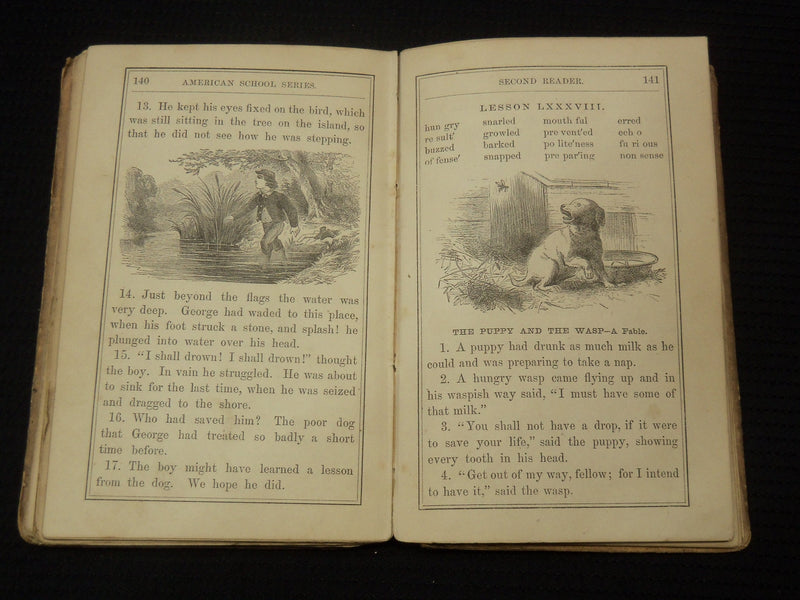 140 AMERICAN SCHOOL SERIES.
13. He kept his eyes fixed on the bird, which
was still sitting in the tree on the island, so
that he did not see how he was stepping.
14. Just beyond the flags the water was
very deep. George had waded to this place,
when his foot struck a stone, and splash! he
plunged into water over his head.
15. "I shall drown! I shall drown!" thought
the boy. In vain he struggled. He was about
to sink for the last time, when he was seized
and dragged to the shore.
16. Who had saved him? The poor dog
that George had treated so badly a short
time before.
17. The boy might have learned a lesson
from the dog. We hope he did.
SECOND READER. 141
LESSON LXXXVIII.
hun gry snarled mouth ful erred
re sult' growled pre vent'ed ech o
buzzed barked po lite'ness fu ri ous
of fense' snapped pre par'ing non sense
THE PUPPY AND THE WASP—A Fable.
1. A puppy had drunk as much milk as he
could and was preparing to take a nap.
2. A hungry wasp came flying up and in
his waspish way said, "I must have some of
that milk."
3. "You shall not have a drop, if it were
to save your life," said the puppy, showing
every tooth in his head.
4. "Get out of my way, fellow; for I intend
to have it," said the wasp.